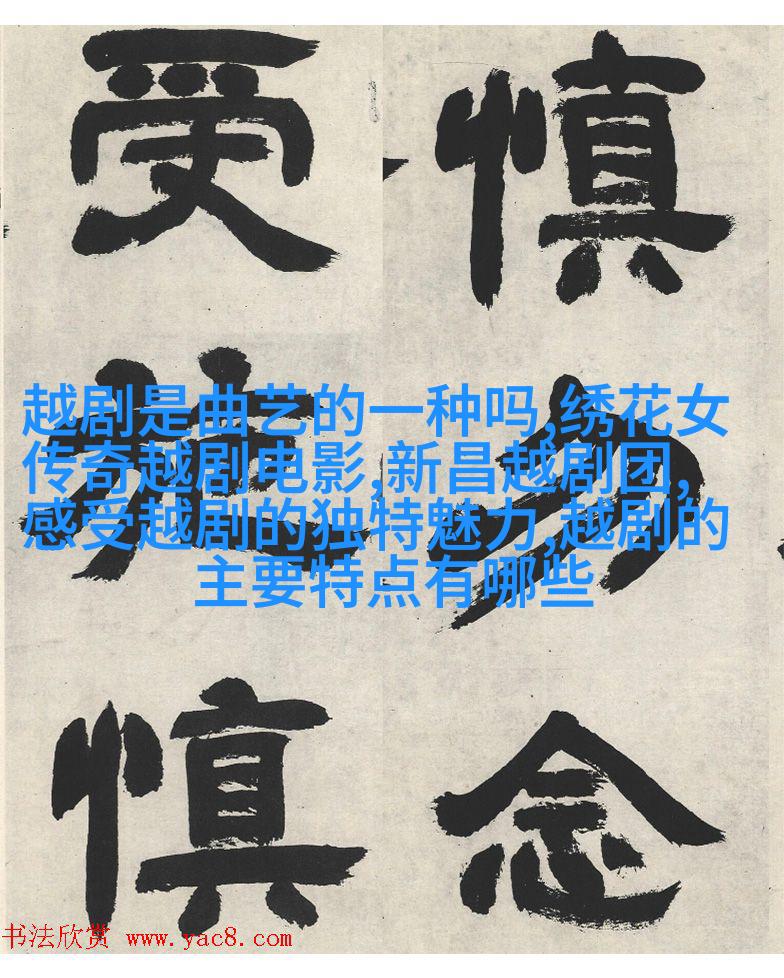 慎勿念
受施慎
越剧是曲艺的一种吗,绣花女
传奇越剧电影,新昌越剧团,
感受越剧的独特魅力,越剧的
主要特点有哪些
书法欣赏 www.yac8.com